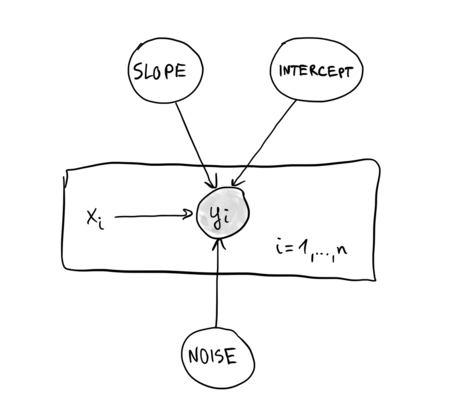 SLOPE
INTERCEPT
xi
yi
i=1,...,n
NOISE